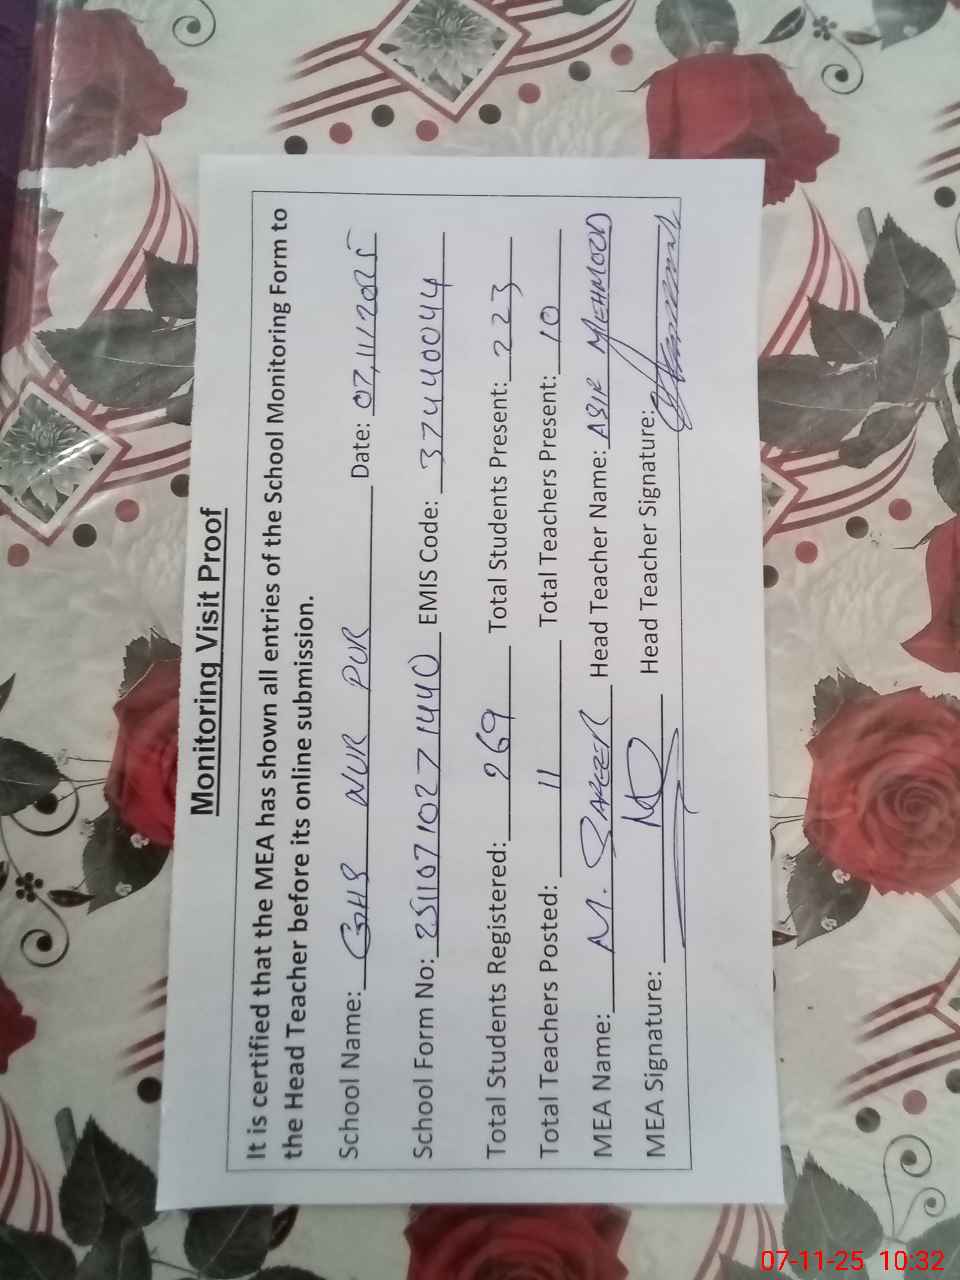 Monitoring Visit Proof
It is certified that the MEA has shown all entries of the School Monitoring Form to
the Head Teacher before its online submission.
School Name: GHS NUR PUR Date: 07,11/2025
School Form No: 25110710271440 EMIS Code: 37440044
Total Students Registered: 269 Total Students Present: 223
Total Teachers Posted: 11 Total Teachers Present: 10
MEA Name: M. Head Teacher Name: MEHMOOD
MEA Signature: Head Teacher Signature:
07-11-25 10:32